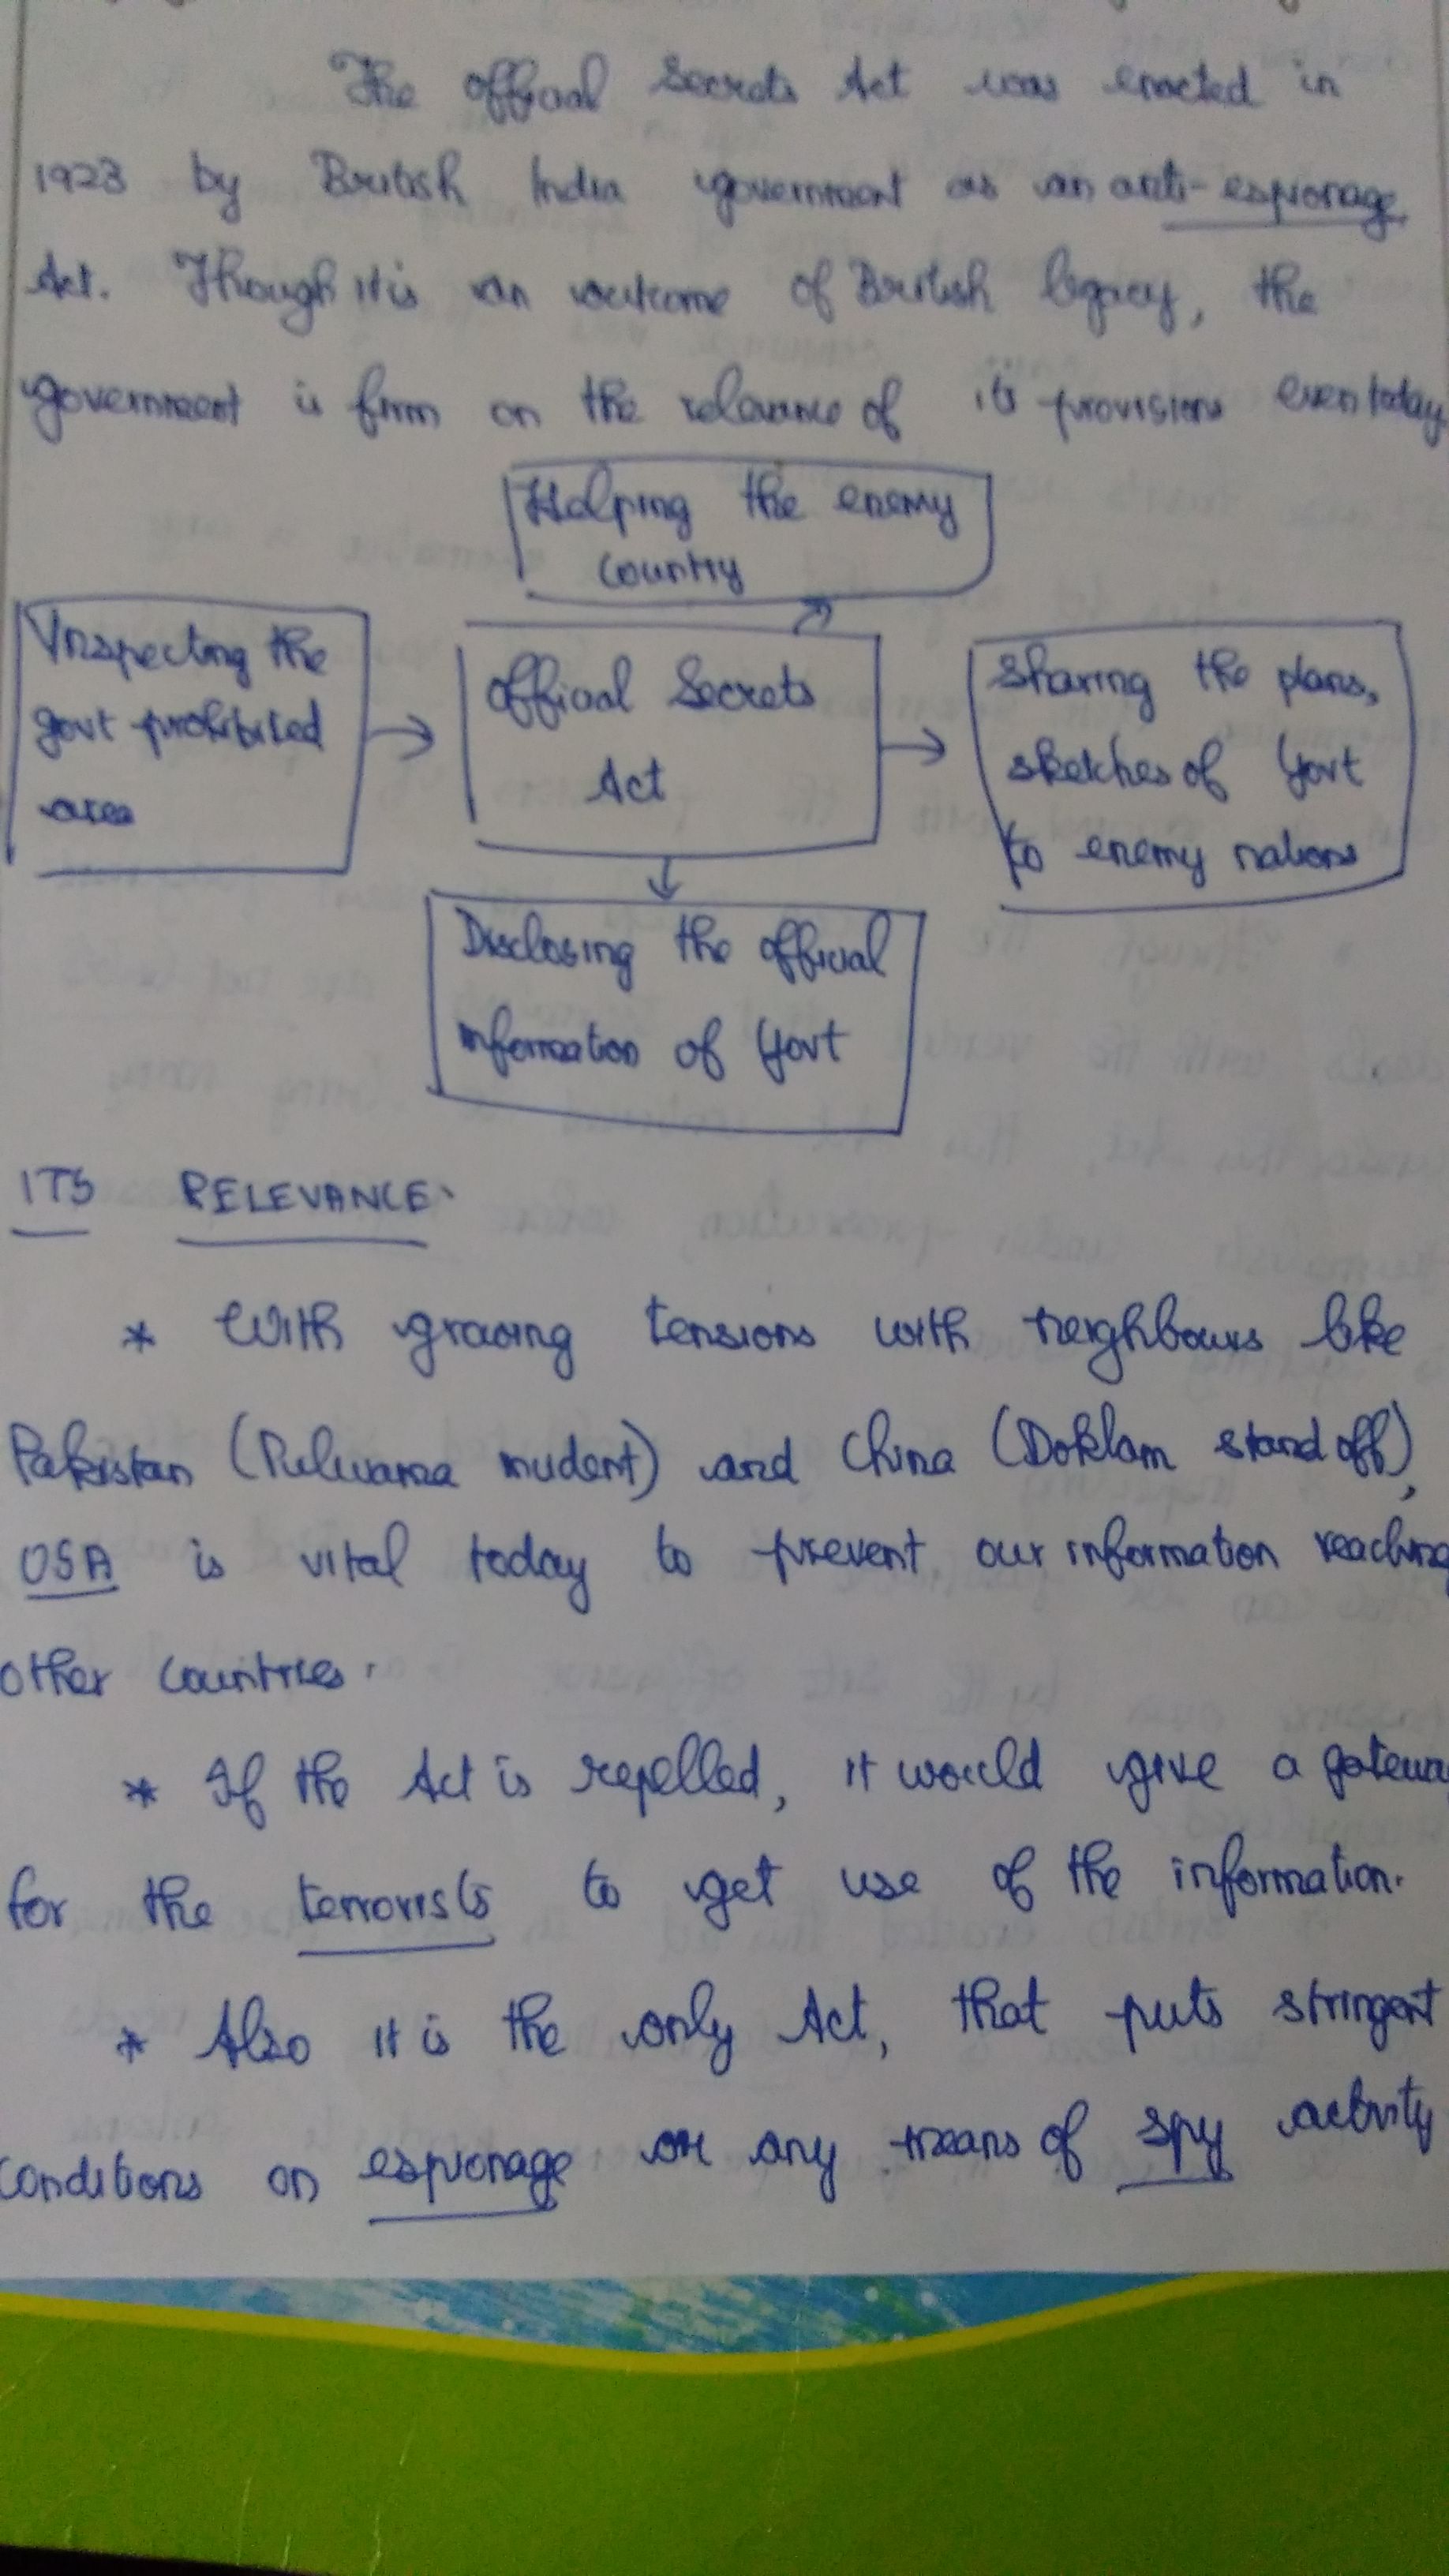 The official Secrets Act was enacted in
1923 by British India government as an anti-espionage
Act. Though it is an outcome of British legacy, the
government is firm on the relevance of its provisions even today
Helping the enemy
country
Inspecting the
govt prohibited
area
official Secrets
Act
Sharing the plans,
sketches of Govt
to enemy nations
Disclosing the official
information of Govt
ITS RELEVANCE.
* With growing tensions with neighbours like
Pakistan (Pulwama incident) and China (Doklam stand off),
OSA is vital today to prevent our information reaching
other countries.
* If the Act is repelled, it would give a gateway
for the terrorists to get use of the information.
* Also it is the only Act, that puts stringent
conditions on espionage or any means of spy activity